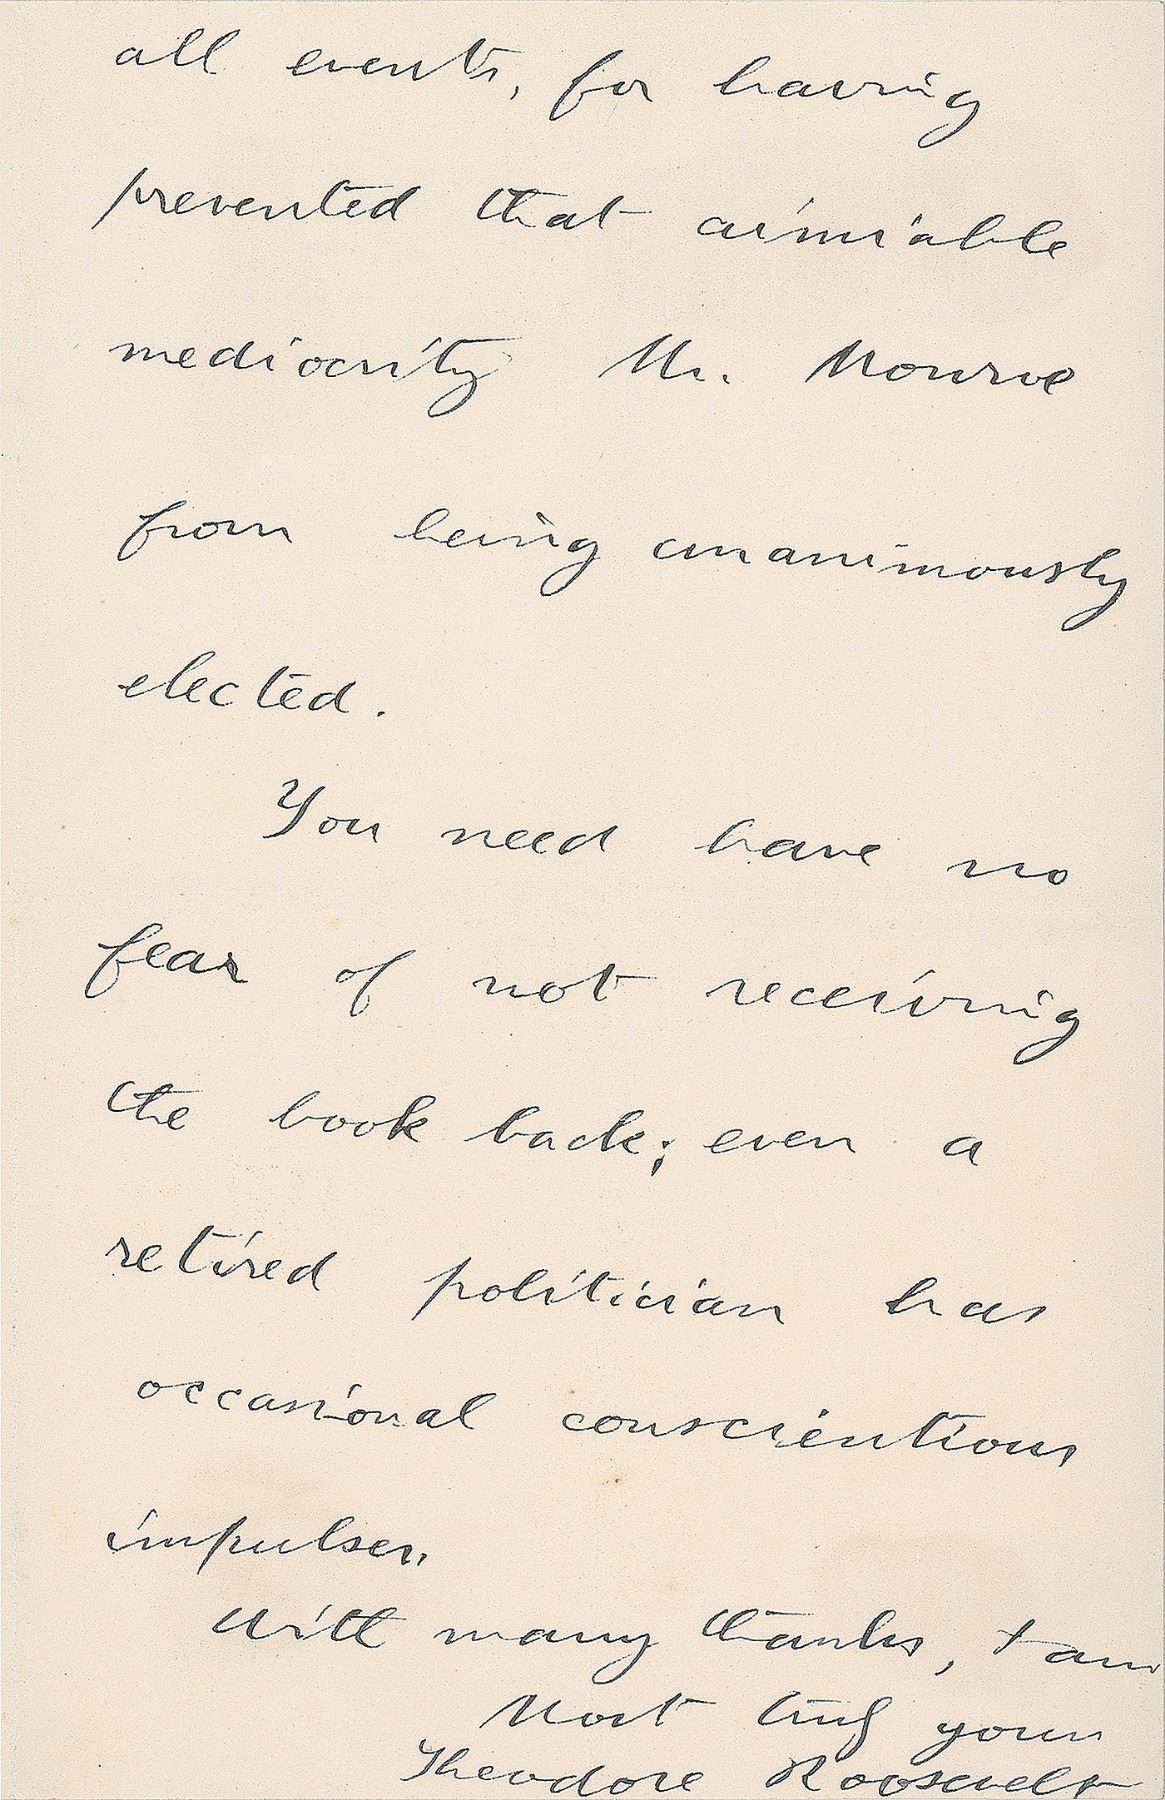 all events, for having
prevented that aimiable
mediocrity Mr. Monroe
from being unanimously
elected.
You need have no
fear of not receiving
the book back; even a
retired politician has
occasional conscientious
impulses.
With many thanks, I am
Most truly yours
Theodore Roosevelt